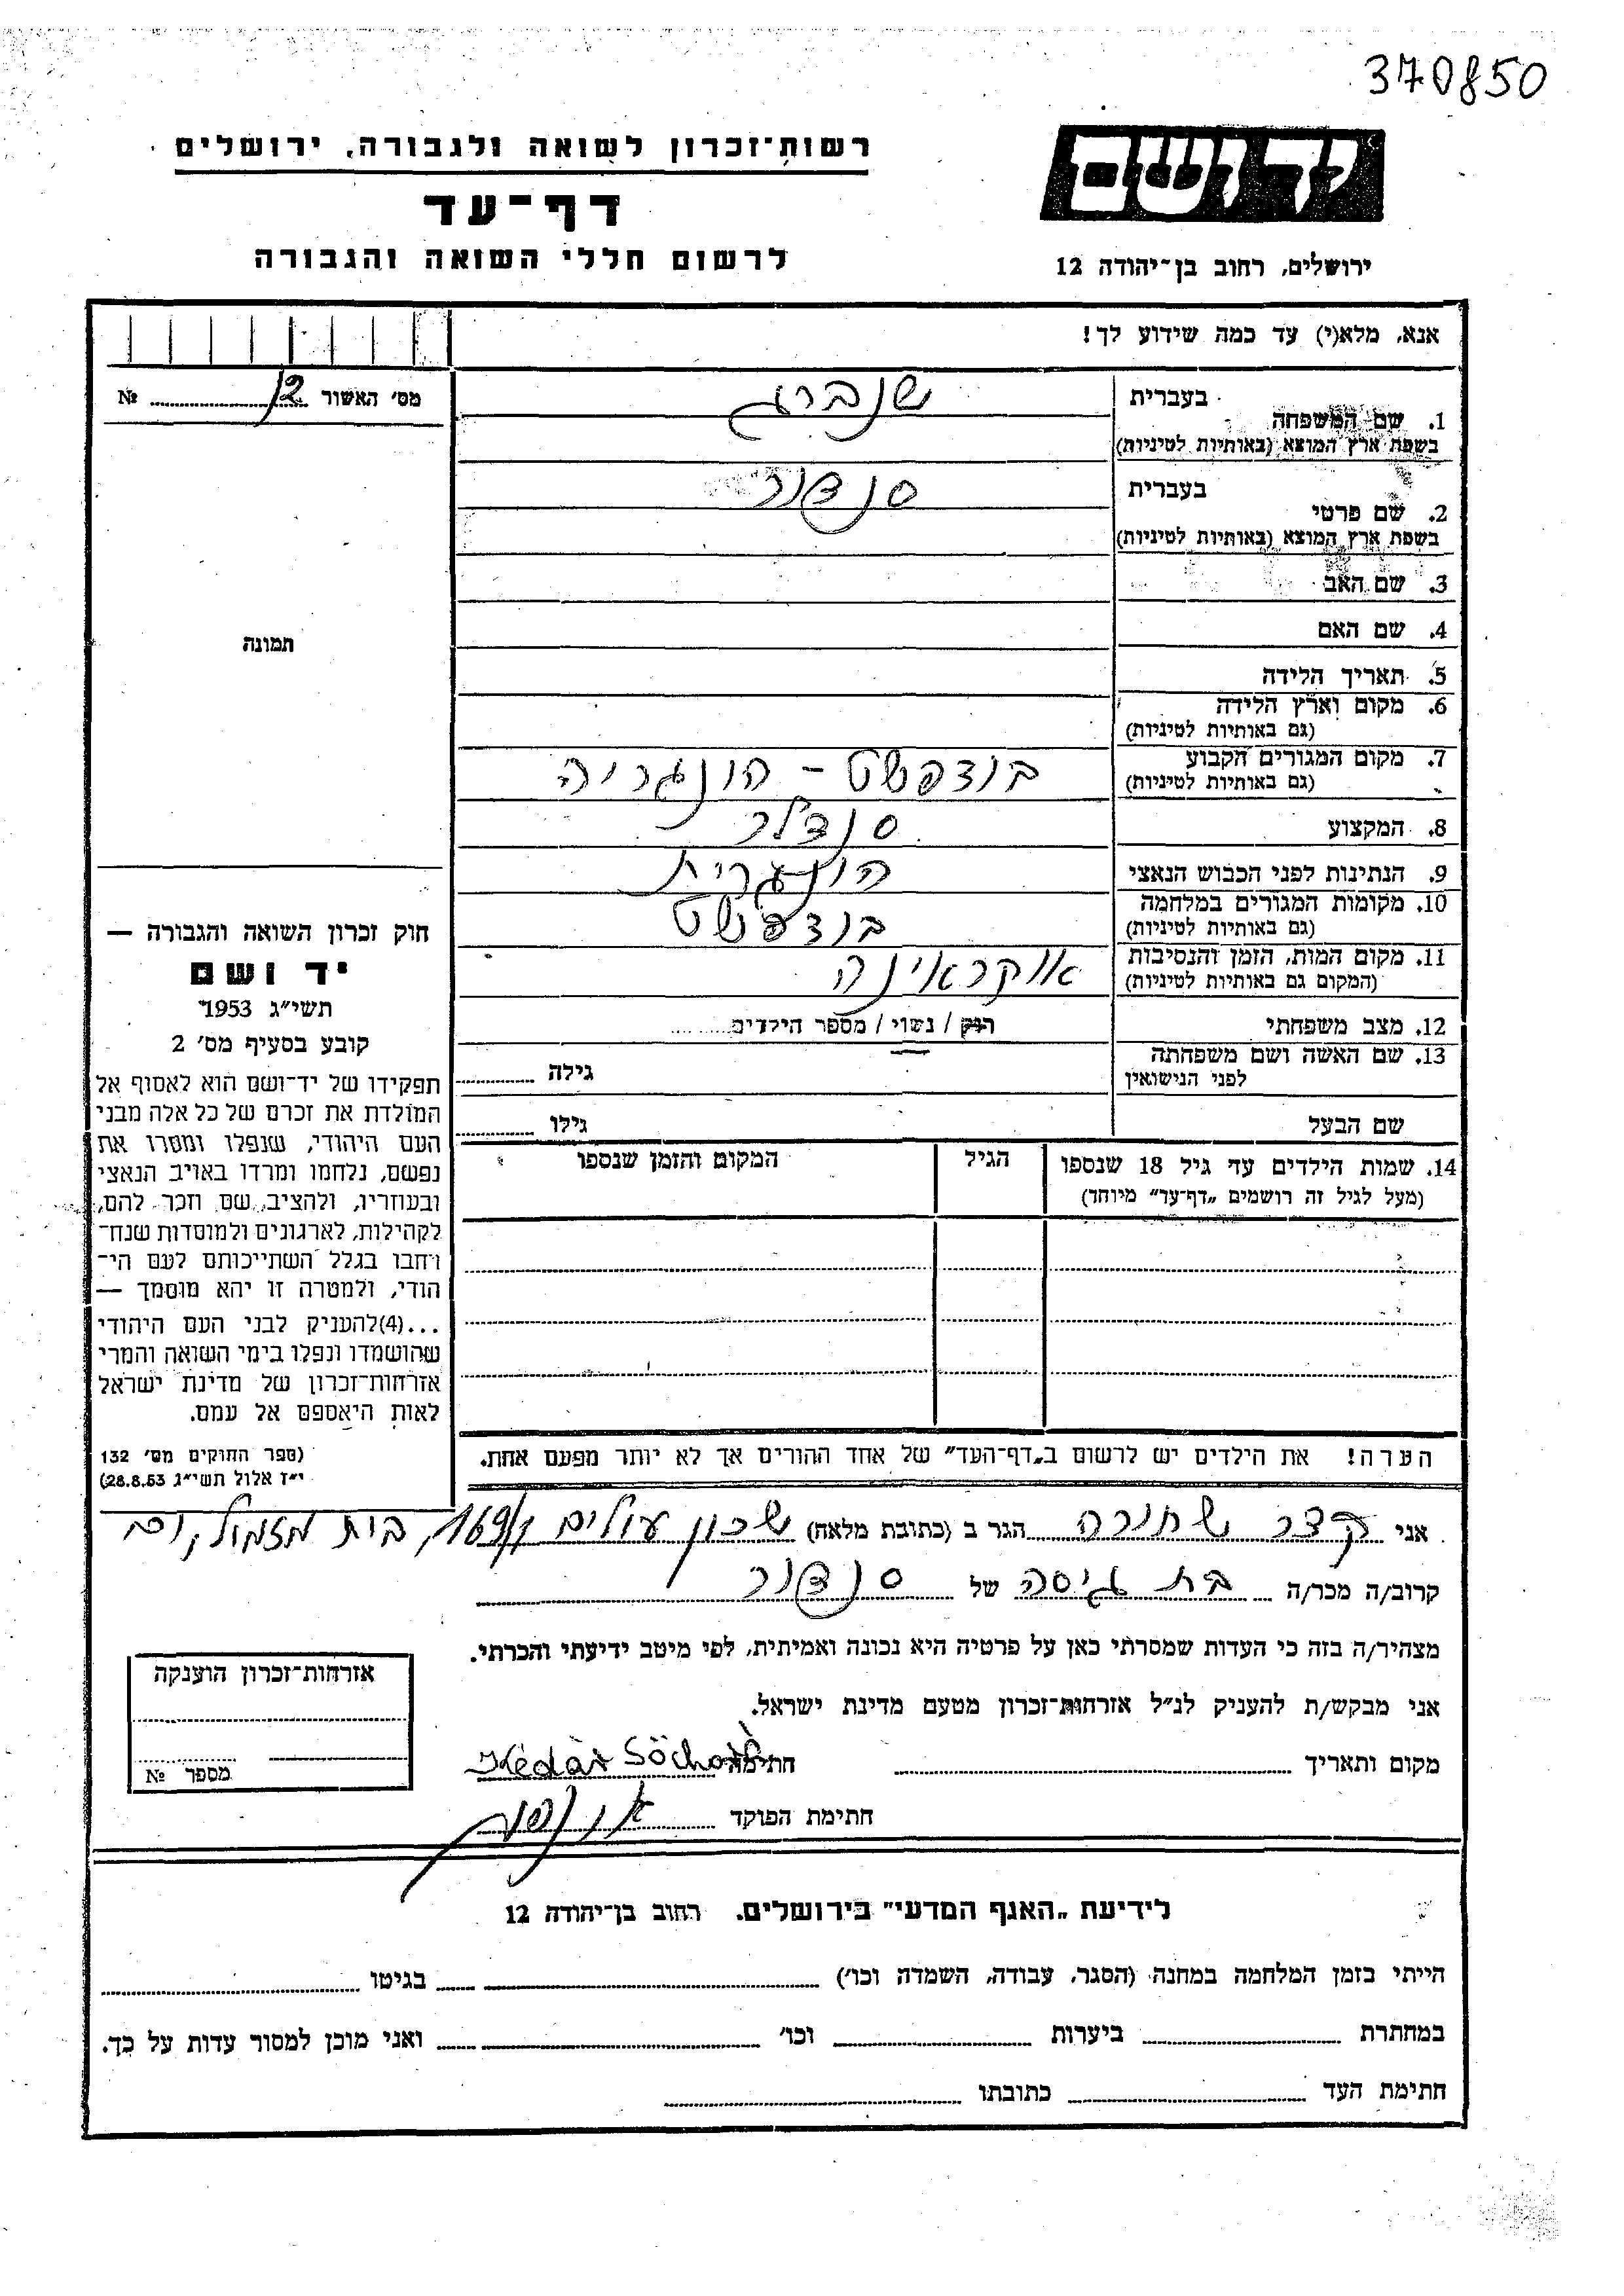 370850
ידושם
ירושלים, רחוב בן־יהודה 12
רשות־זכרון לשואה ולגבורה, ירושלים
דף־עד
לרשום חללי השואה והגבורה
אנא, מלא(י) עד כמה שידוע לך!
מס׳ האשור 12 №
1. שם המשפחה בעברית שנברג
בשפת ארץ המוצא (באותיות לטיניות)
2. שם פרטי בעברית סנדור
בשפת ארץ המוצא (באותיות לטיניות)
3. שם האב
4. שם האם
5. תאריך הלידה
6. מקום וארץ הלידה
(גם באותיות לטיניות)
7. מקום המגורים הקבוע בודפשט - הונגריה
(גם באותיות לטיניות)
8. המקצוע סנדלר
9. הנתינות לפני הכבוש הנאצי הונגרית
10. מקומות המגורים במלחמה בודפשט
(גם באותיות לטיניות)
11. מקום המות, הזמן והנסיבות אוקראינה
(המקום גם באותיות לטיניות)
12. מצב משפחתי רוק / נשוי / מספר הילדים
13. שם האשה ושם משפחתה גילה
לפני הנישואין
שם הבעל גילו
14. שמות הילדים עד גיל 18 שנספו הגיל המקום והזמן שנספו
(מעל לגיל זה רושמים „דף־עד״ מיוחד)
הערה! את הילדים יש לרשום ב„דף־העד״ של אחד ההורים אך לא יותר מפעם אחת.
תמונה
חוק זכרון השואה והגבורה —
יד ושם
תשי״ג 1953
קובע בסעיף מס׳ 2
תפקידו של יד־ושם הוא לאסוף אל
המולדת את זכרם של כל אלה מבני
העם היהודי, שנפלו ומסרו את
נפשם, נלחמו ומרדו באויב הנאצי
ובעוזריו, ולהציב שם וזכר להם,
לקהילות, לארגונים ולמוסדות שנח־
רחבו בגלל השתייכותם לעם הי־
הודי, ולמטרה זו יהא מוסמך —
...(4)להעניק לבני העם היהודי
שהושמדו ונפלו בימי השואה והמרי
אזרחות־זכרון של מדינת ישראל
לאות היאספם אל עמם.
(ספר החוקים מס׳ 132
י״ז אלול תשי״ג 28.8.53)
אני קדר שחורה הגר ב (כתובת מלאה) שכון עולים 169/ בית מזמיל
קרוב/ה מכר/ה בת גיסה של סנדור
מצהיר/ה בזה כי העדות שמסרתי כאן על פרטיה היא נכונה ואמיתית, לפי מיטב ידיעתי והכרתי.
אני מבקש/ת להעניק לנ״ל אזרחות־זכרון מטעם מדינת ישראל.
מקום ותאריך חתימה Kedar Söchorà
חתימת הפוקד
אזרחות־זכרון הוענקה
מספר №
לידיעת „האגף המדעי״ בירושלים. רחוב בן־יהודה 12
הייתי בזמן המלחמה במחנה (הסגר, עבודה, השמדה וכו׳) בגיטו
במחתרת ביערות וכו׳ ואני מוכן למסור עדות על כך.
חתימת העד כתובתו